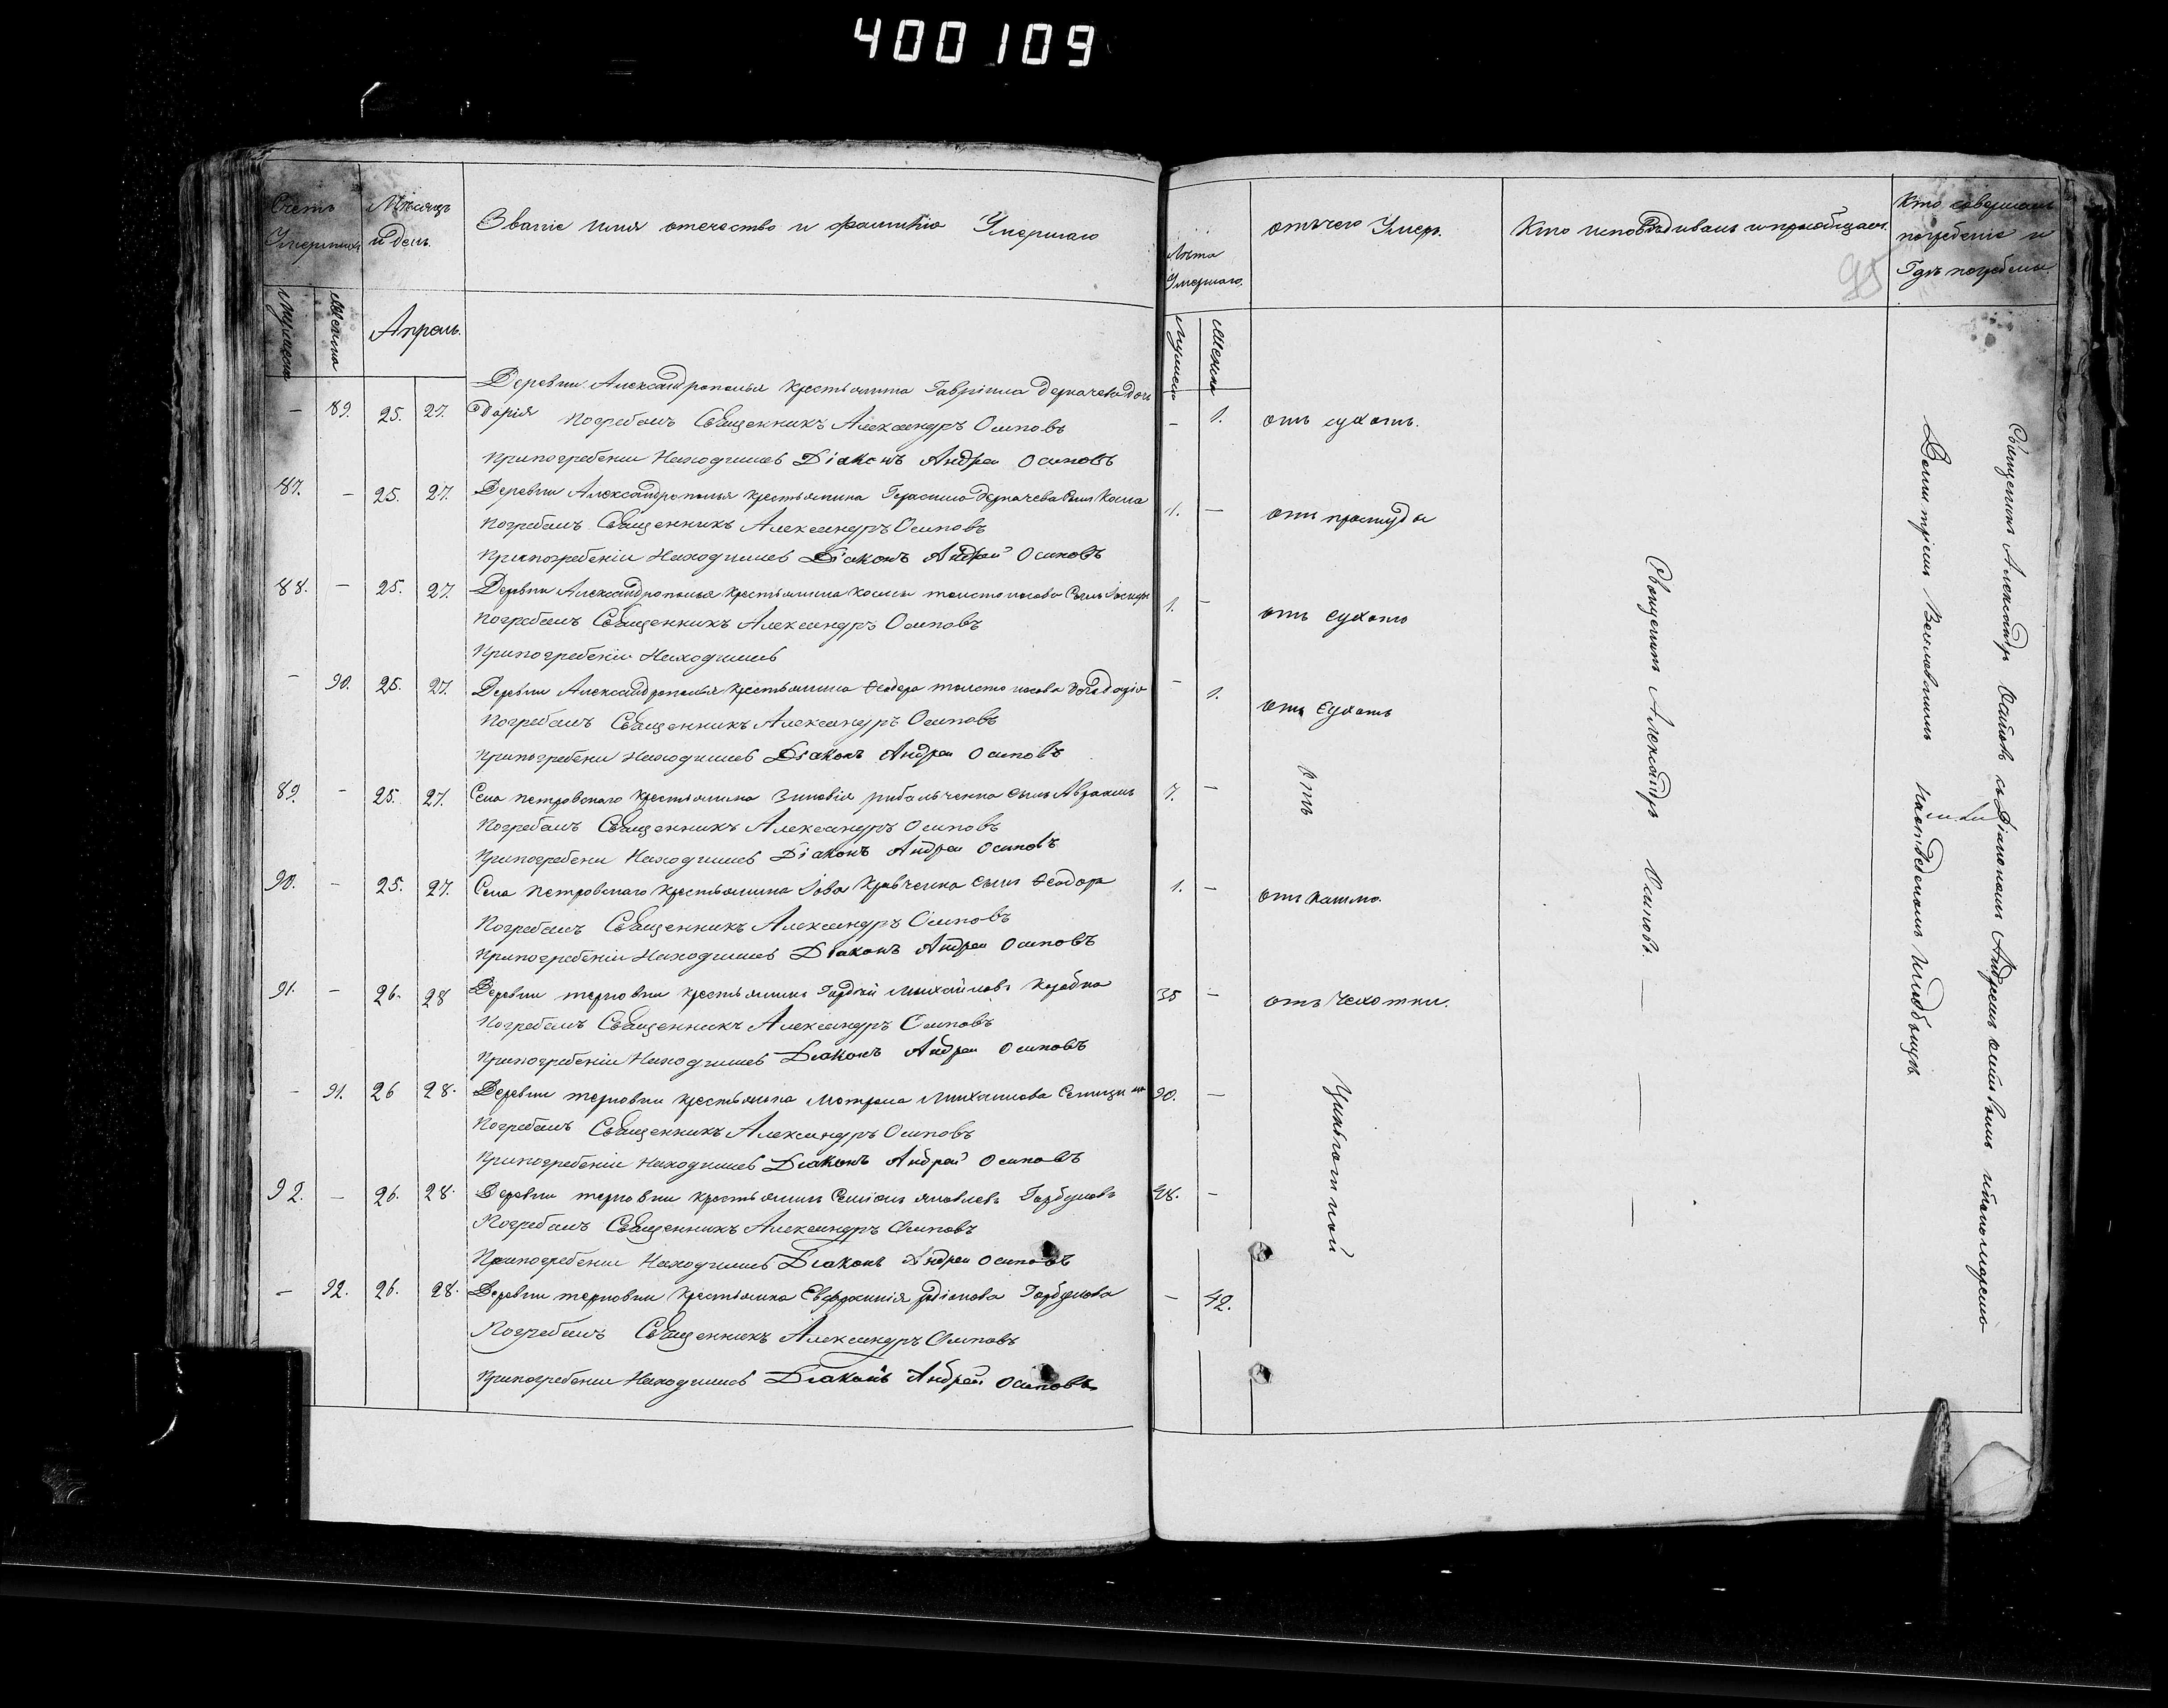 400109
Счетъ Умершихъ
Мѣсяцъ и день.
Званіе имя отечество и фамилію Умершаго
Лѣта Умершаго.
отъ чего Умеръ.
Кто исповѣдивалъ и пріобщалъ.
Кто совершалъ погребеніе и Гдѣ погребены
95
Мужеска
Женска
Апрель.
Мужеска
Женска
Деревни Александрополья крестьянина Гавріила Деркачева дочь
— 89. 25. 27. Дарія Погребалъ Священникъ Александръ Осиповъ — 1. отъ сухотъ.
Припогребении Находились Діаконъ Андреи Осиповъ
87. — 25. 27. Деревни Александрополья крестьянина Герасима Деркачева сынъ Косма 1. — отъ простуды
Погребалъ Священникъ Александръ Осиповъ
Припогребеніи Находились Діаконъ Андрей Осиповъ
88. — 25. 27. Деревни Александрополья крестьянина Космы толстоносова Сынъ 1. — отъ сухотъ
Погребалъ Священникъ Александръ Осиповъ
Припогребеніи Находились
— 90. 25. 27. Деревни Александрополья крестьянина Ѳеодора толстоносова — 1. отъ Сухотъ
Погребалъ Священникъ Александръ Осиповъ
Припогребени Находились Діаконъ Андреи Осиповъ
89. — 25. 27. Села петровскаго крестьянина Зиновія рибальченка сынъ Авраамъ 7. — Отъ
Погребалъ Священникъ Александръ Осиповъ
Припогребени Находились Діаконъ Андреи Осиповъ
90. — 25. 27. Села петровскаго крестьянина Іова Кравченка сынъ Ѳеодоръ 1. — отъ кашлю.
Погребалъ Священникъ Александръ Осиповъ
Припогребеніи Находились Діаконъ Андреи Осиповъ
91. — 26. 28 Деревни терновки крестьянинъ Гордѣй Михайловъ Коробка 35 — отъ Чехотки.
Погребалъ Священникъ Александръ Осиповъ
Припогребеніи Находились Діаконъ Андреи Осиповъ
— 91. 26 28. Деревни терновки крестьянка Мотрона Михаилова 90. — Цынготной
Погребалъ Священникъ Александръ Осиповъ
Припогребеніи Находились Діаконъ Андрей Осиповъ
92. — 26. 28. Деревни терновки крестьянинъ Семіонъ яковлевъ Горбуновъ 48. —
Погребалъ Священникъ Александръ Осиповъ
Припогребении Находились Діаконъ Андреи Осиповъ
— 92. 26. 28. Деревни терновки крестьянка Евфросинія родіонова Горбунова — 42.
Погребалъ Священникъ Александръ Осиповъ
Припогребении Находились Діаконъ Андрей Осиповъ
Священникъ Александръ Осиповъ. —
Священникъ Александръ Осиповъ съ Діакономъ Андреемъ осиповымъ и пономаремъ
Димитріемъ Волловичемъ на кладбищѣ